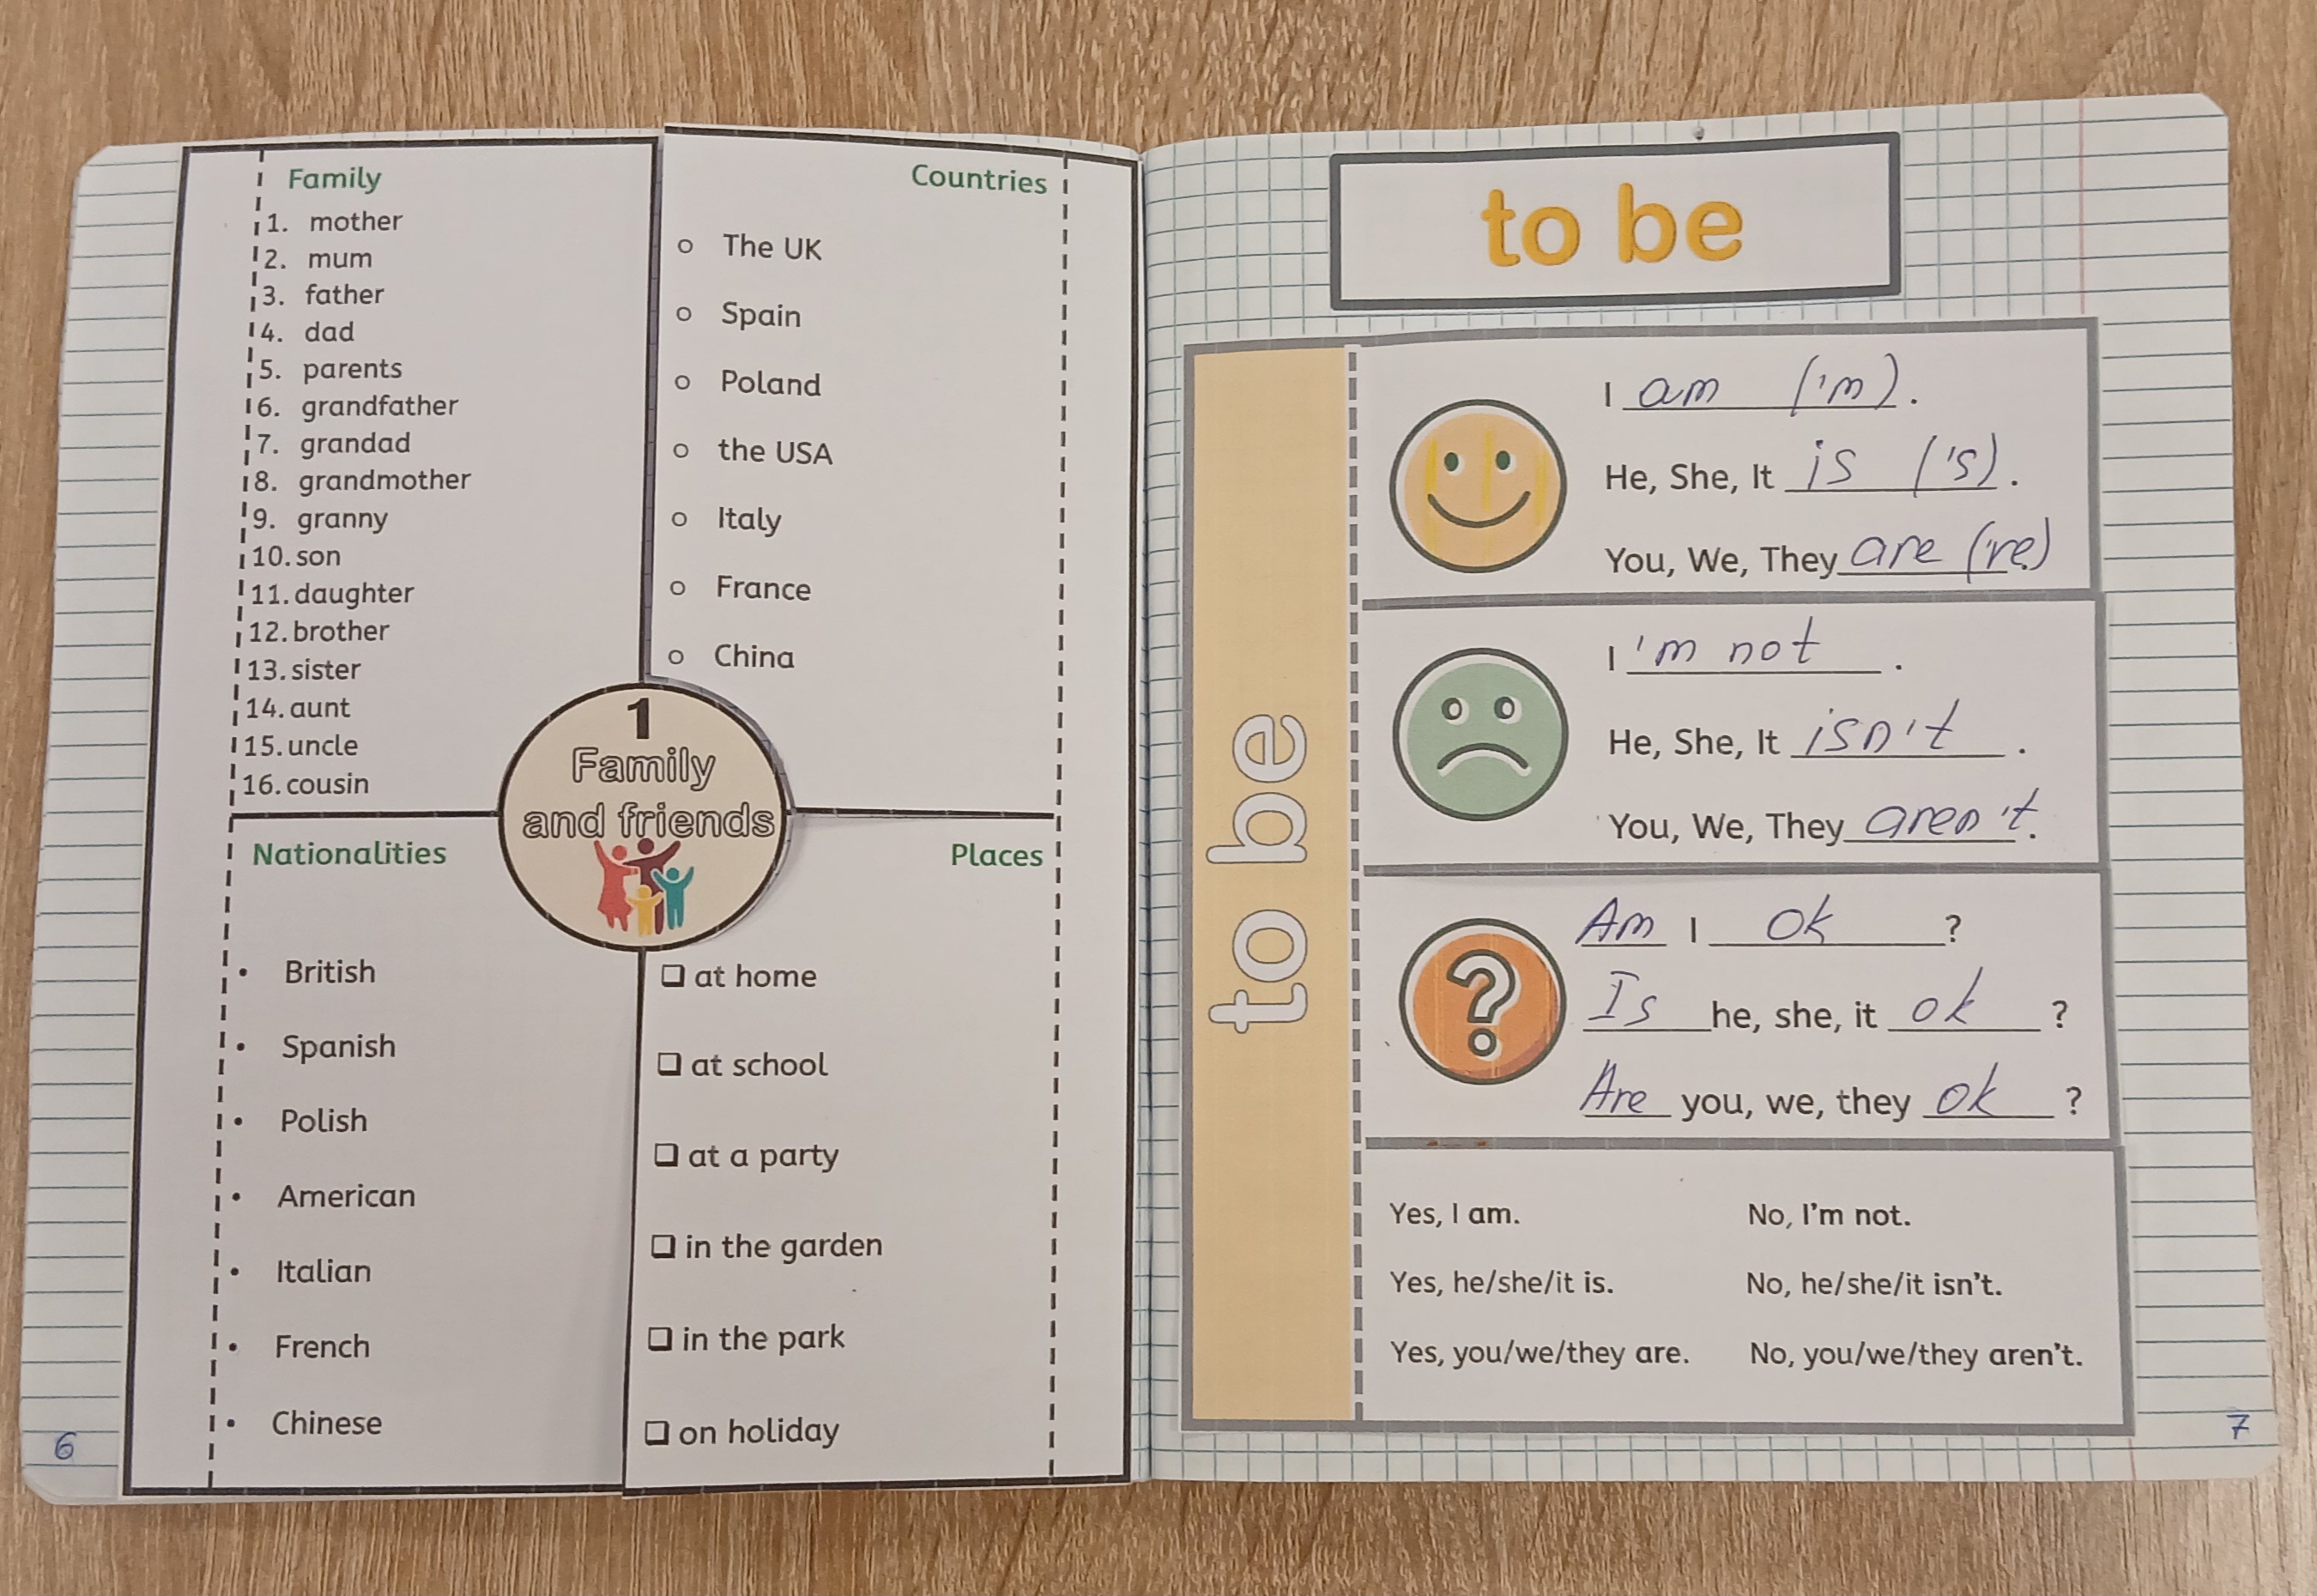 Family
1. mother
2. mum
3. father
4. dad
5. parents
6. grandfather
7. grandad
8. grandmother
9. granny
10. son
11. daughter
12. brother
13. sister
14. aunt
15. uncle
16. cousin
Countries
The UK
Spain
Poland
the USA
Italy
France
China
1
Family
and friends
Nationalities
British
Spanish
Polish
American
Italian
French
Chinese
Places
at home
at school
at a party
in the garden
in the park
on holiday
6
to be
to be
I am ('m).
He, She, It is ('s).
You, We, They are ('re).
I 'm not.
He, She, It isn't.
You, We, They aren't.
?
Am I ok?
Is he, she, it ok?
Are you, we, they ok?
Yes, I am. No, I'm not.
Yes, he/she/it is. No, he/she/it isn't.
Yes, you/we/they are. No, you/we/they aren't.
7